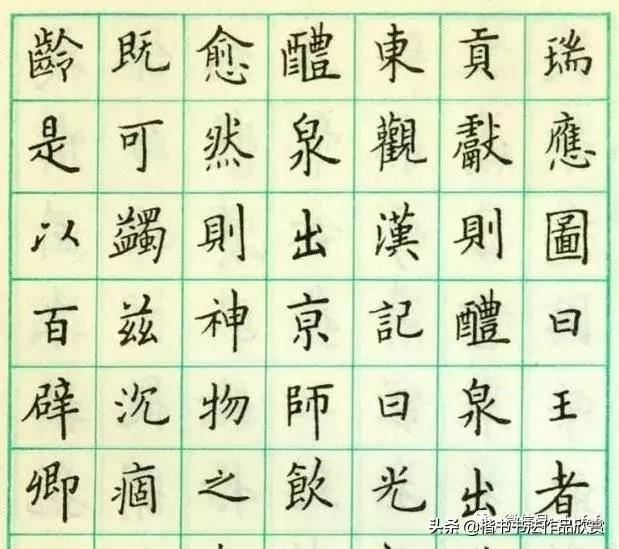 瑞應圖曰王者
貢獻則醴泉出
東觀漢記曰光
醴泉出京師飲
愈然則神物之
既可蠲兹沉痼
齡是以百辟卿
头条 @楷书书法作品欣赏